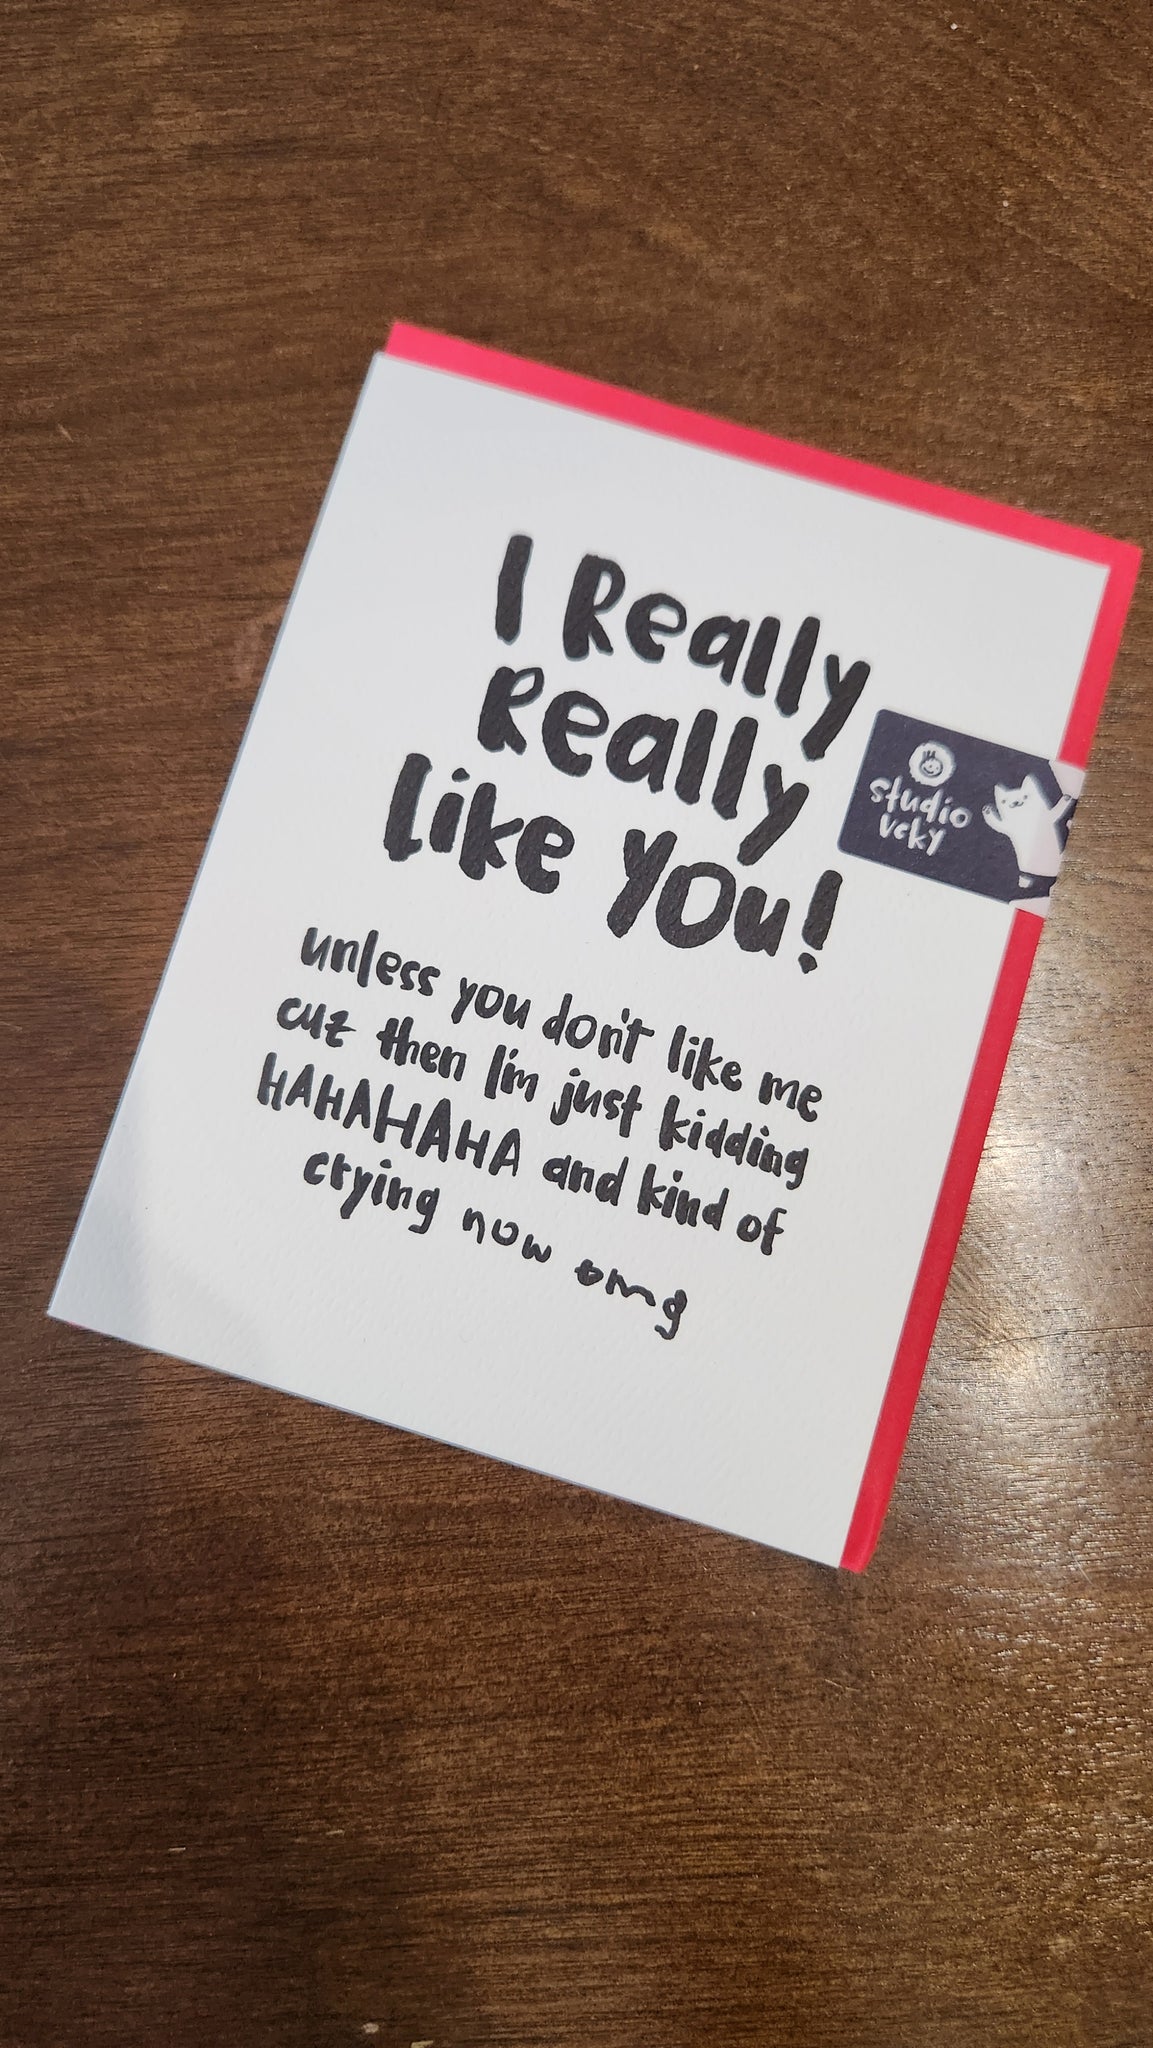 I Really
Really
Like You!
unless you don't like me
cuz then I'm just kidding
HAHAHAHA and kind of
crying now omg
studio
vcky